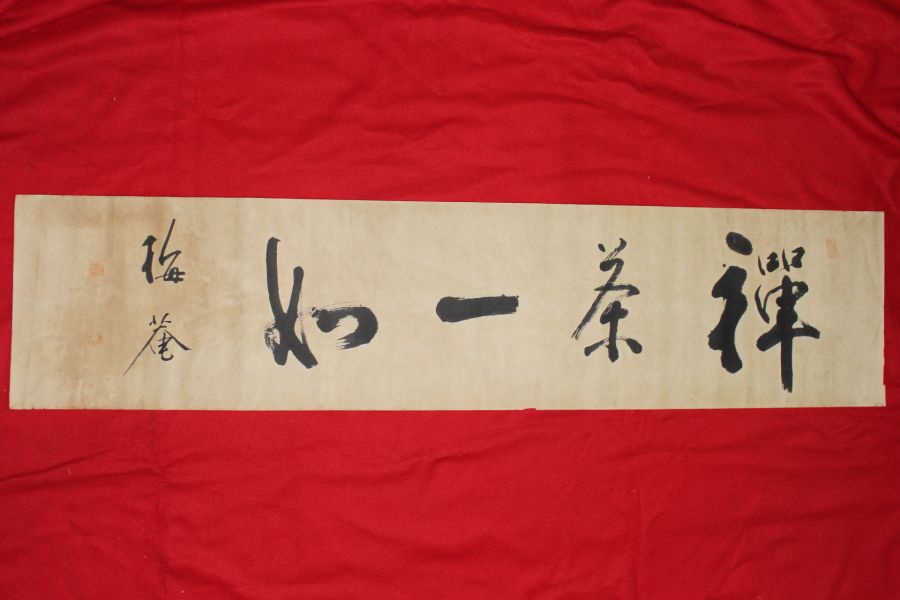 禪茶一如
梅菴